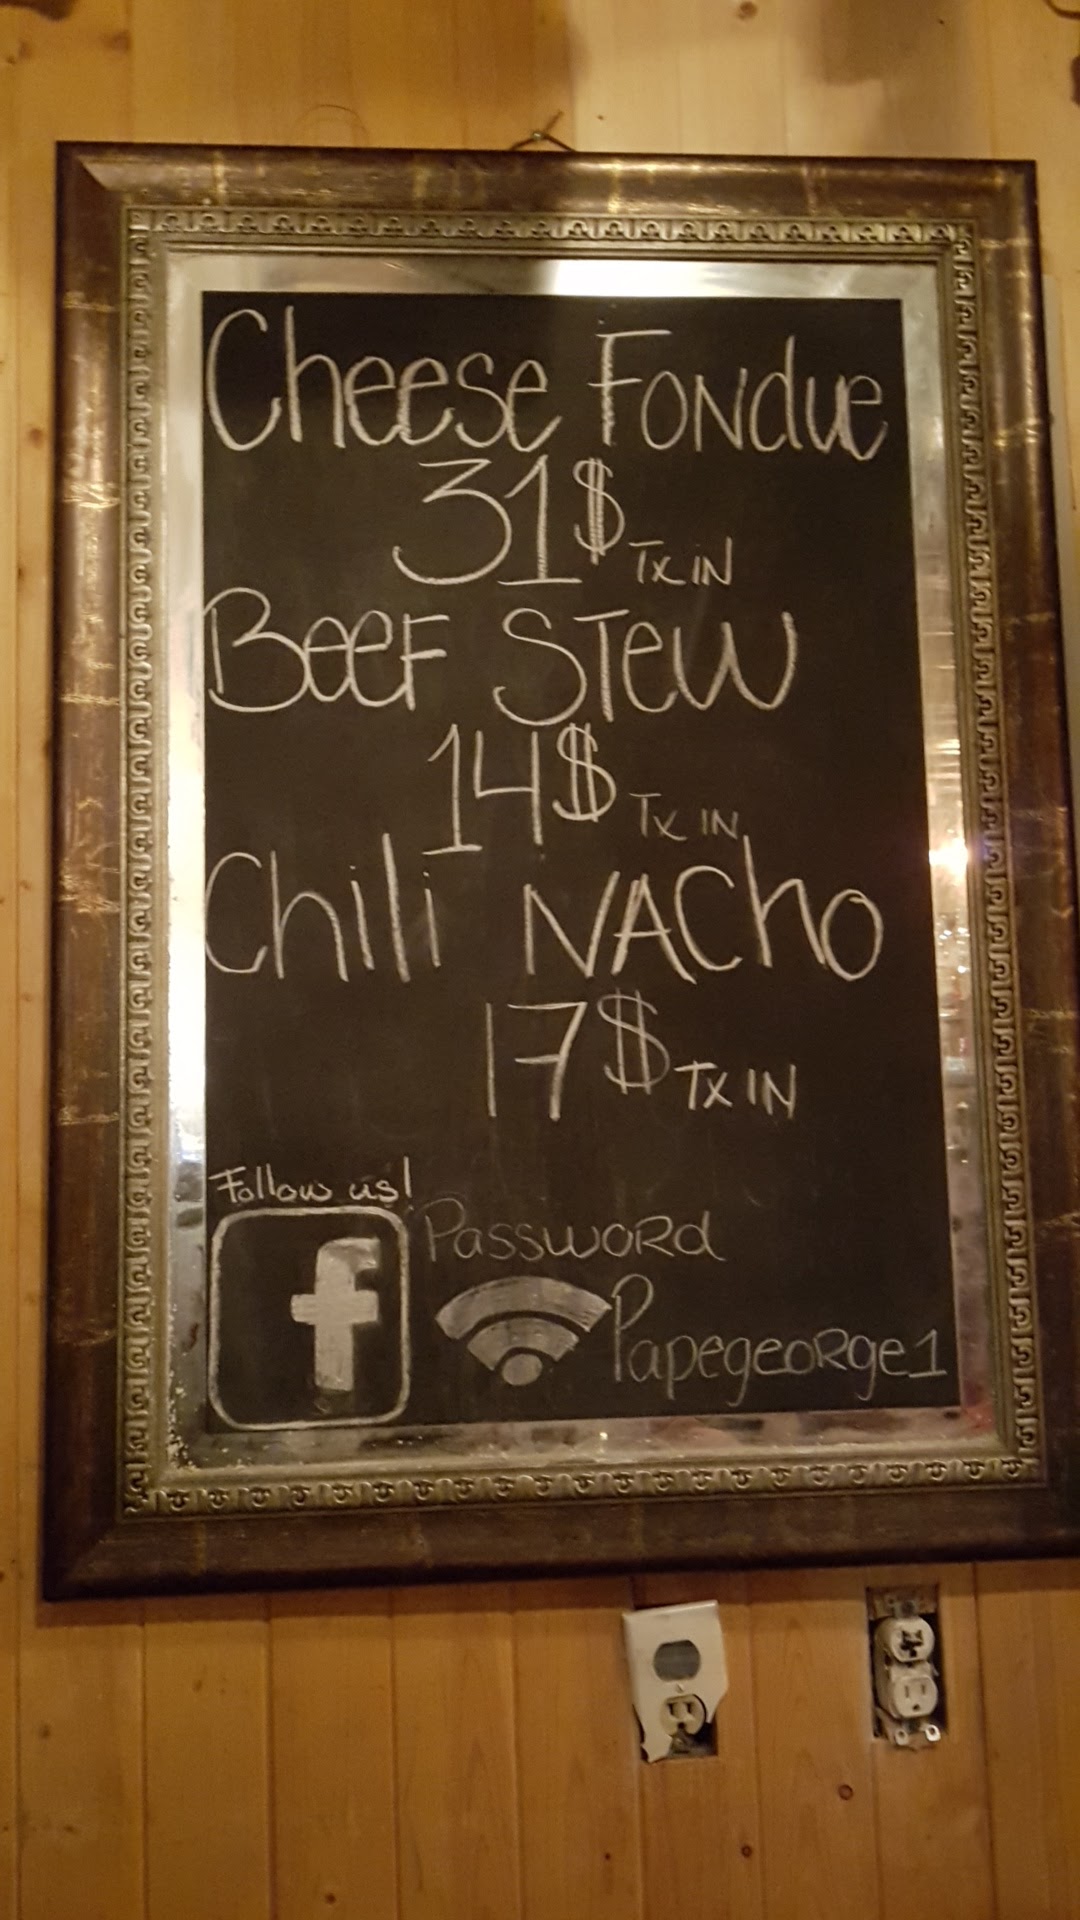 Cheese Fondue
31$ Tx iN
Beef Stew
14$ Tx IN
Chili NACho
17$ Tx IN
Follow us!
f
Password
Papegeorge1